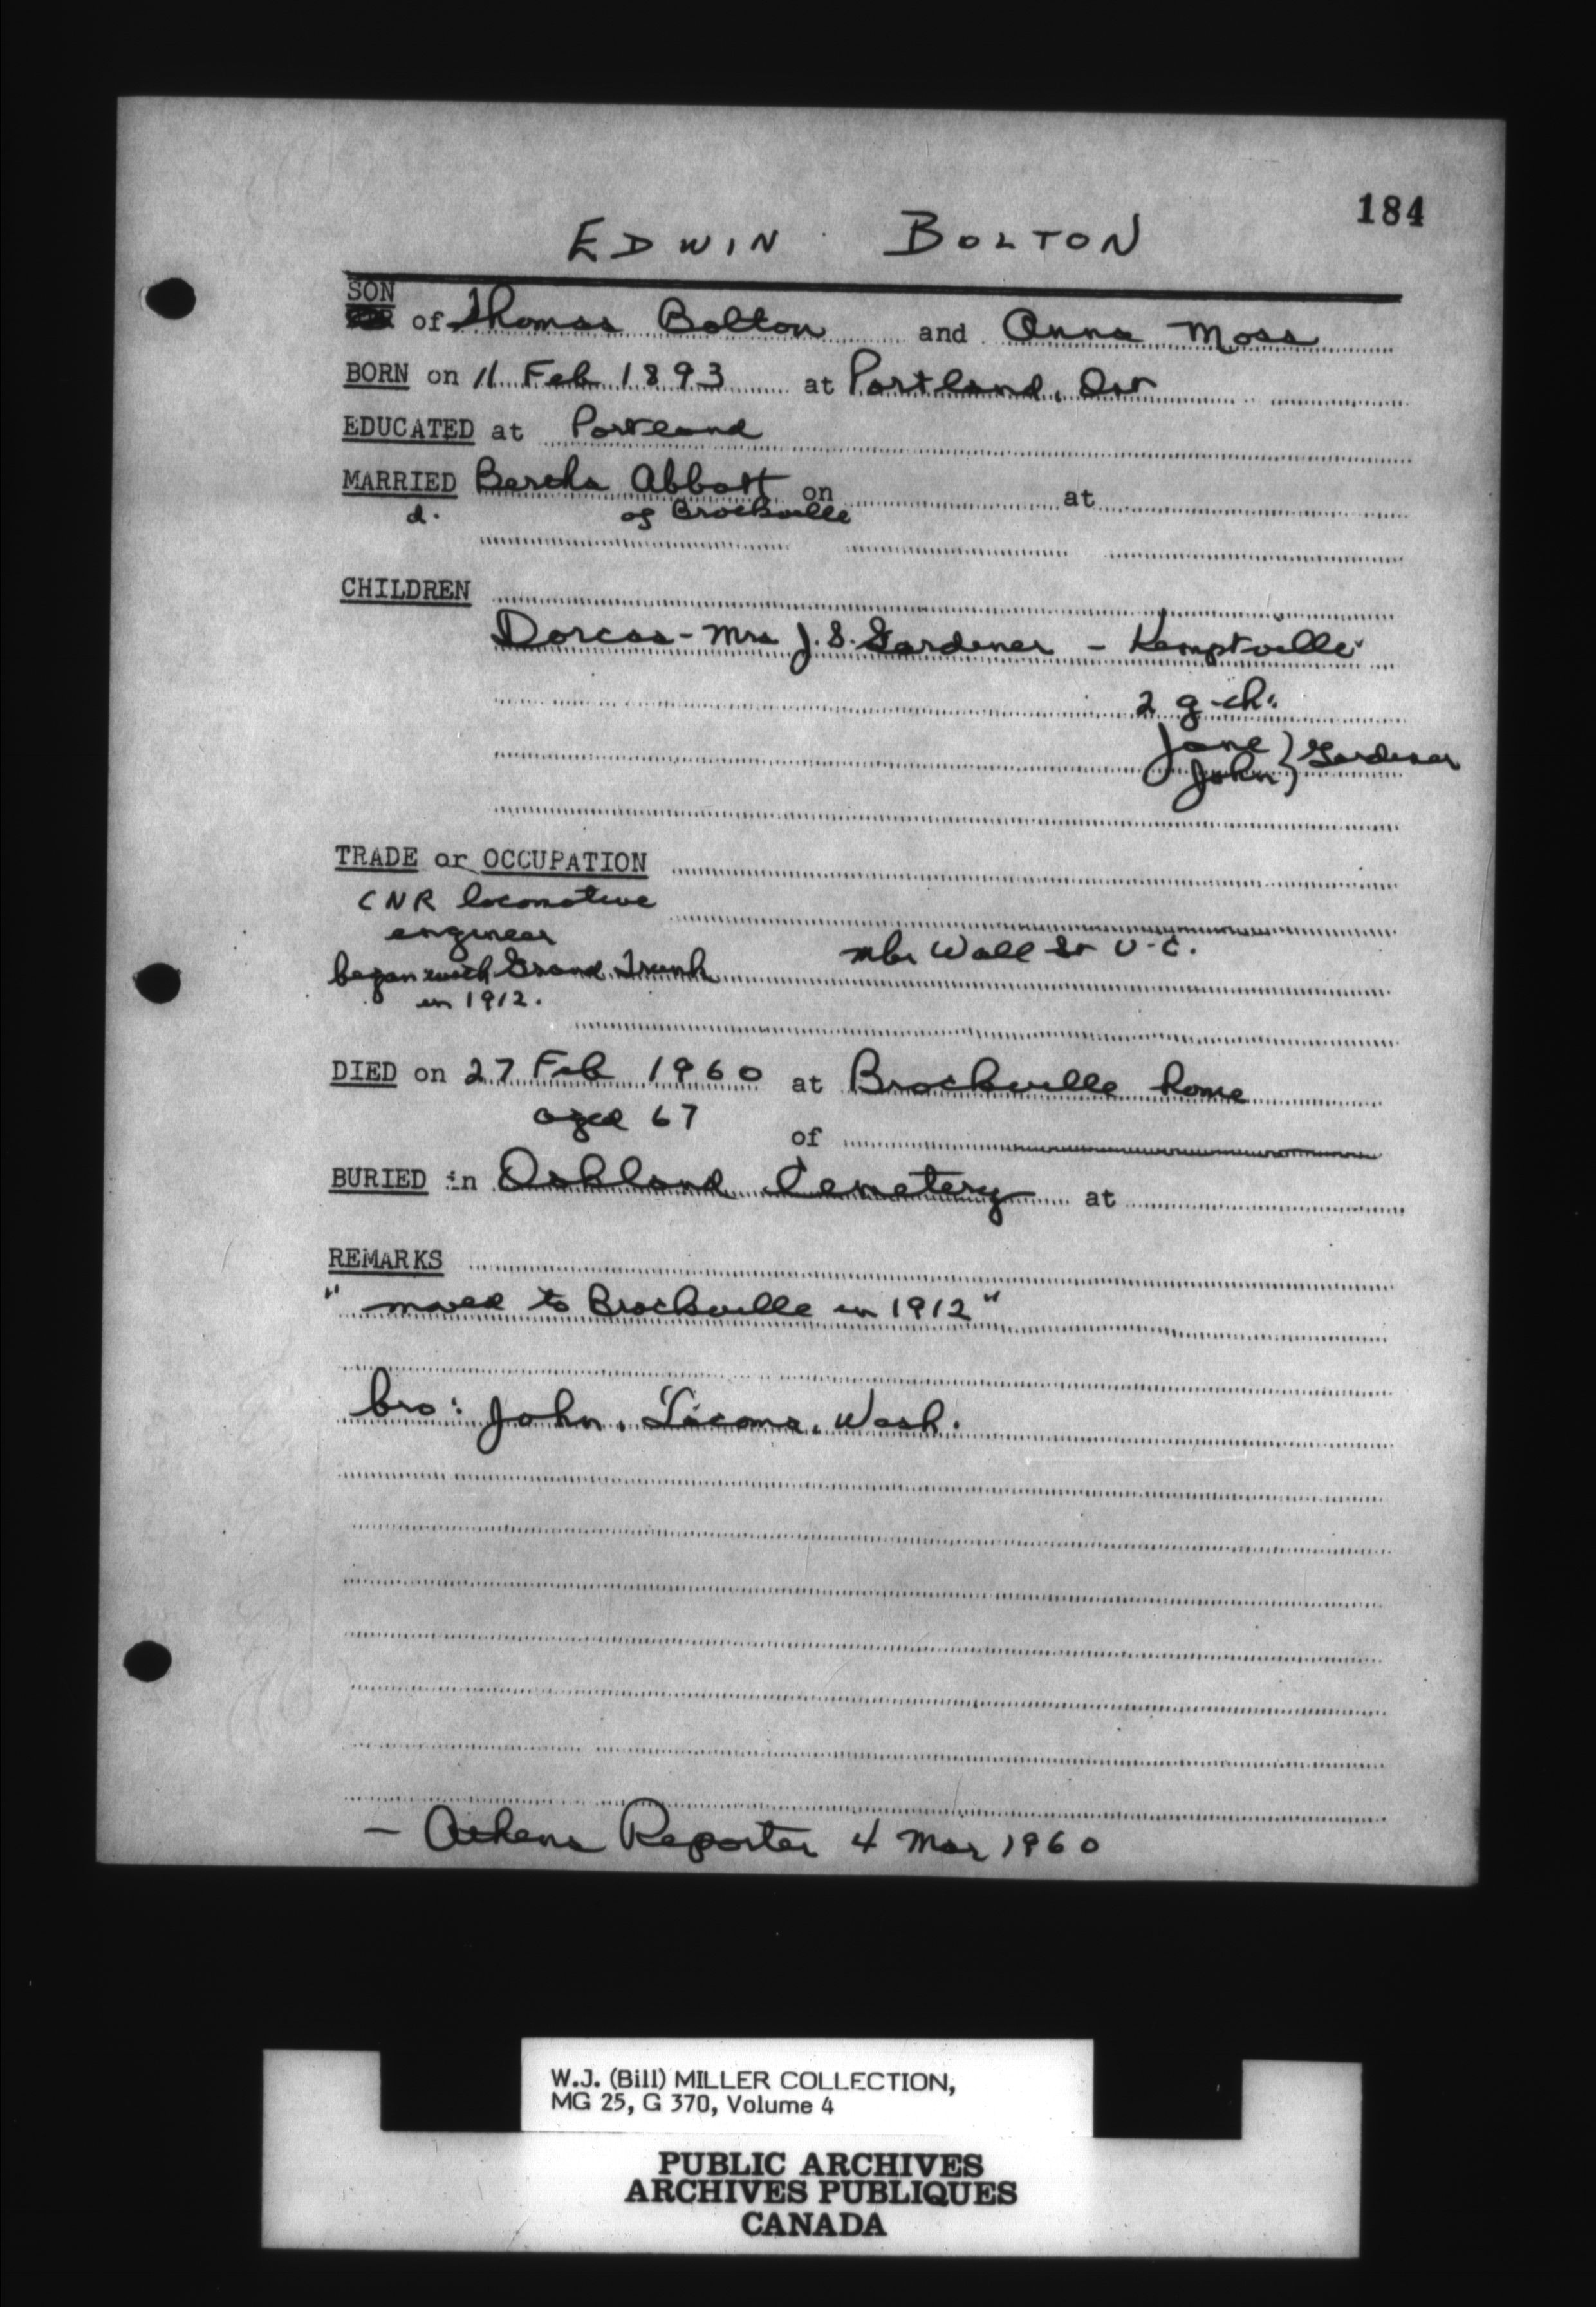 184
EDWIN BOLTON
SON
of Thomas Bolton and Anna Moss
BORN on 11 Feb 1893 at Portland, Ont
EDUCATED at Portland
MARRIED Bertha Abbott on at
d. of Brockville
CHILDREN
Dorcas - Mrs J. S. Gardener - Kemptville
2 g-ch:
Jane } Gardener
John }
TRADE or OCCUPATION
CNR locomotive
engineer
began with Grand Trunk
in 1912.
mbr Wall St U-C.
DIED on 27 Feb 1960 at Brockville home
aged 67
of
BURIED in Oakland Cemetery at
REMARKS
" moved to Brockville in 1912 "
bro: John, Tacoma, Wash.
- Athens Reporter 4 Mar 1960
W.J. (Bill) MILLER COLLECTION,
MG 25, G 370, Volume 4
PUBLIC ARCHIVES
ARCHIVES PUBLIQUES
CANADA